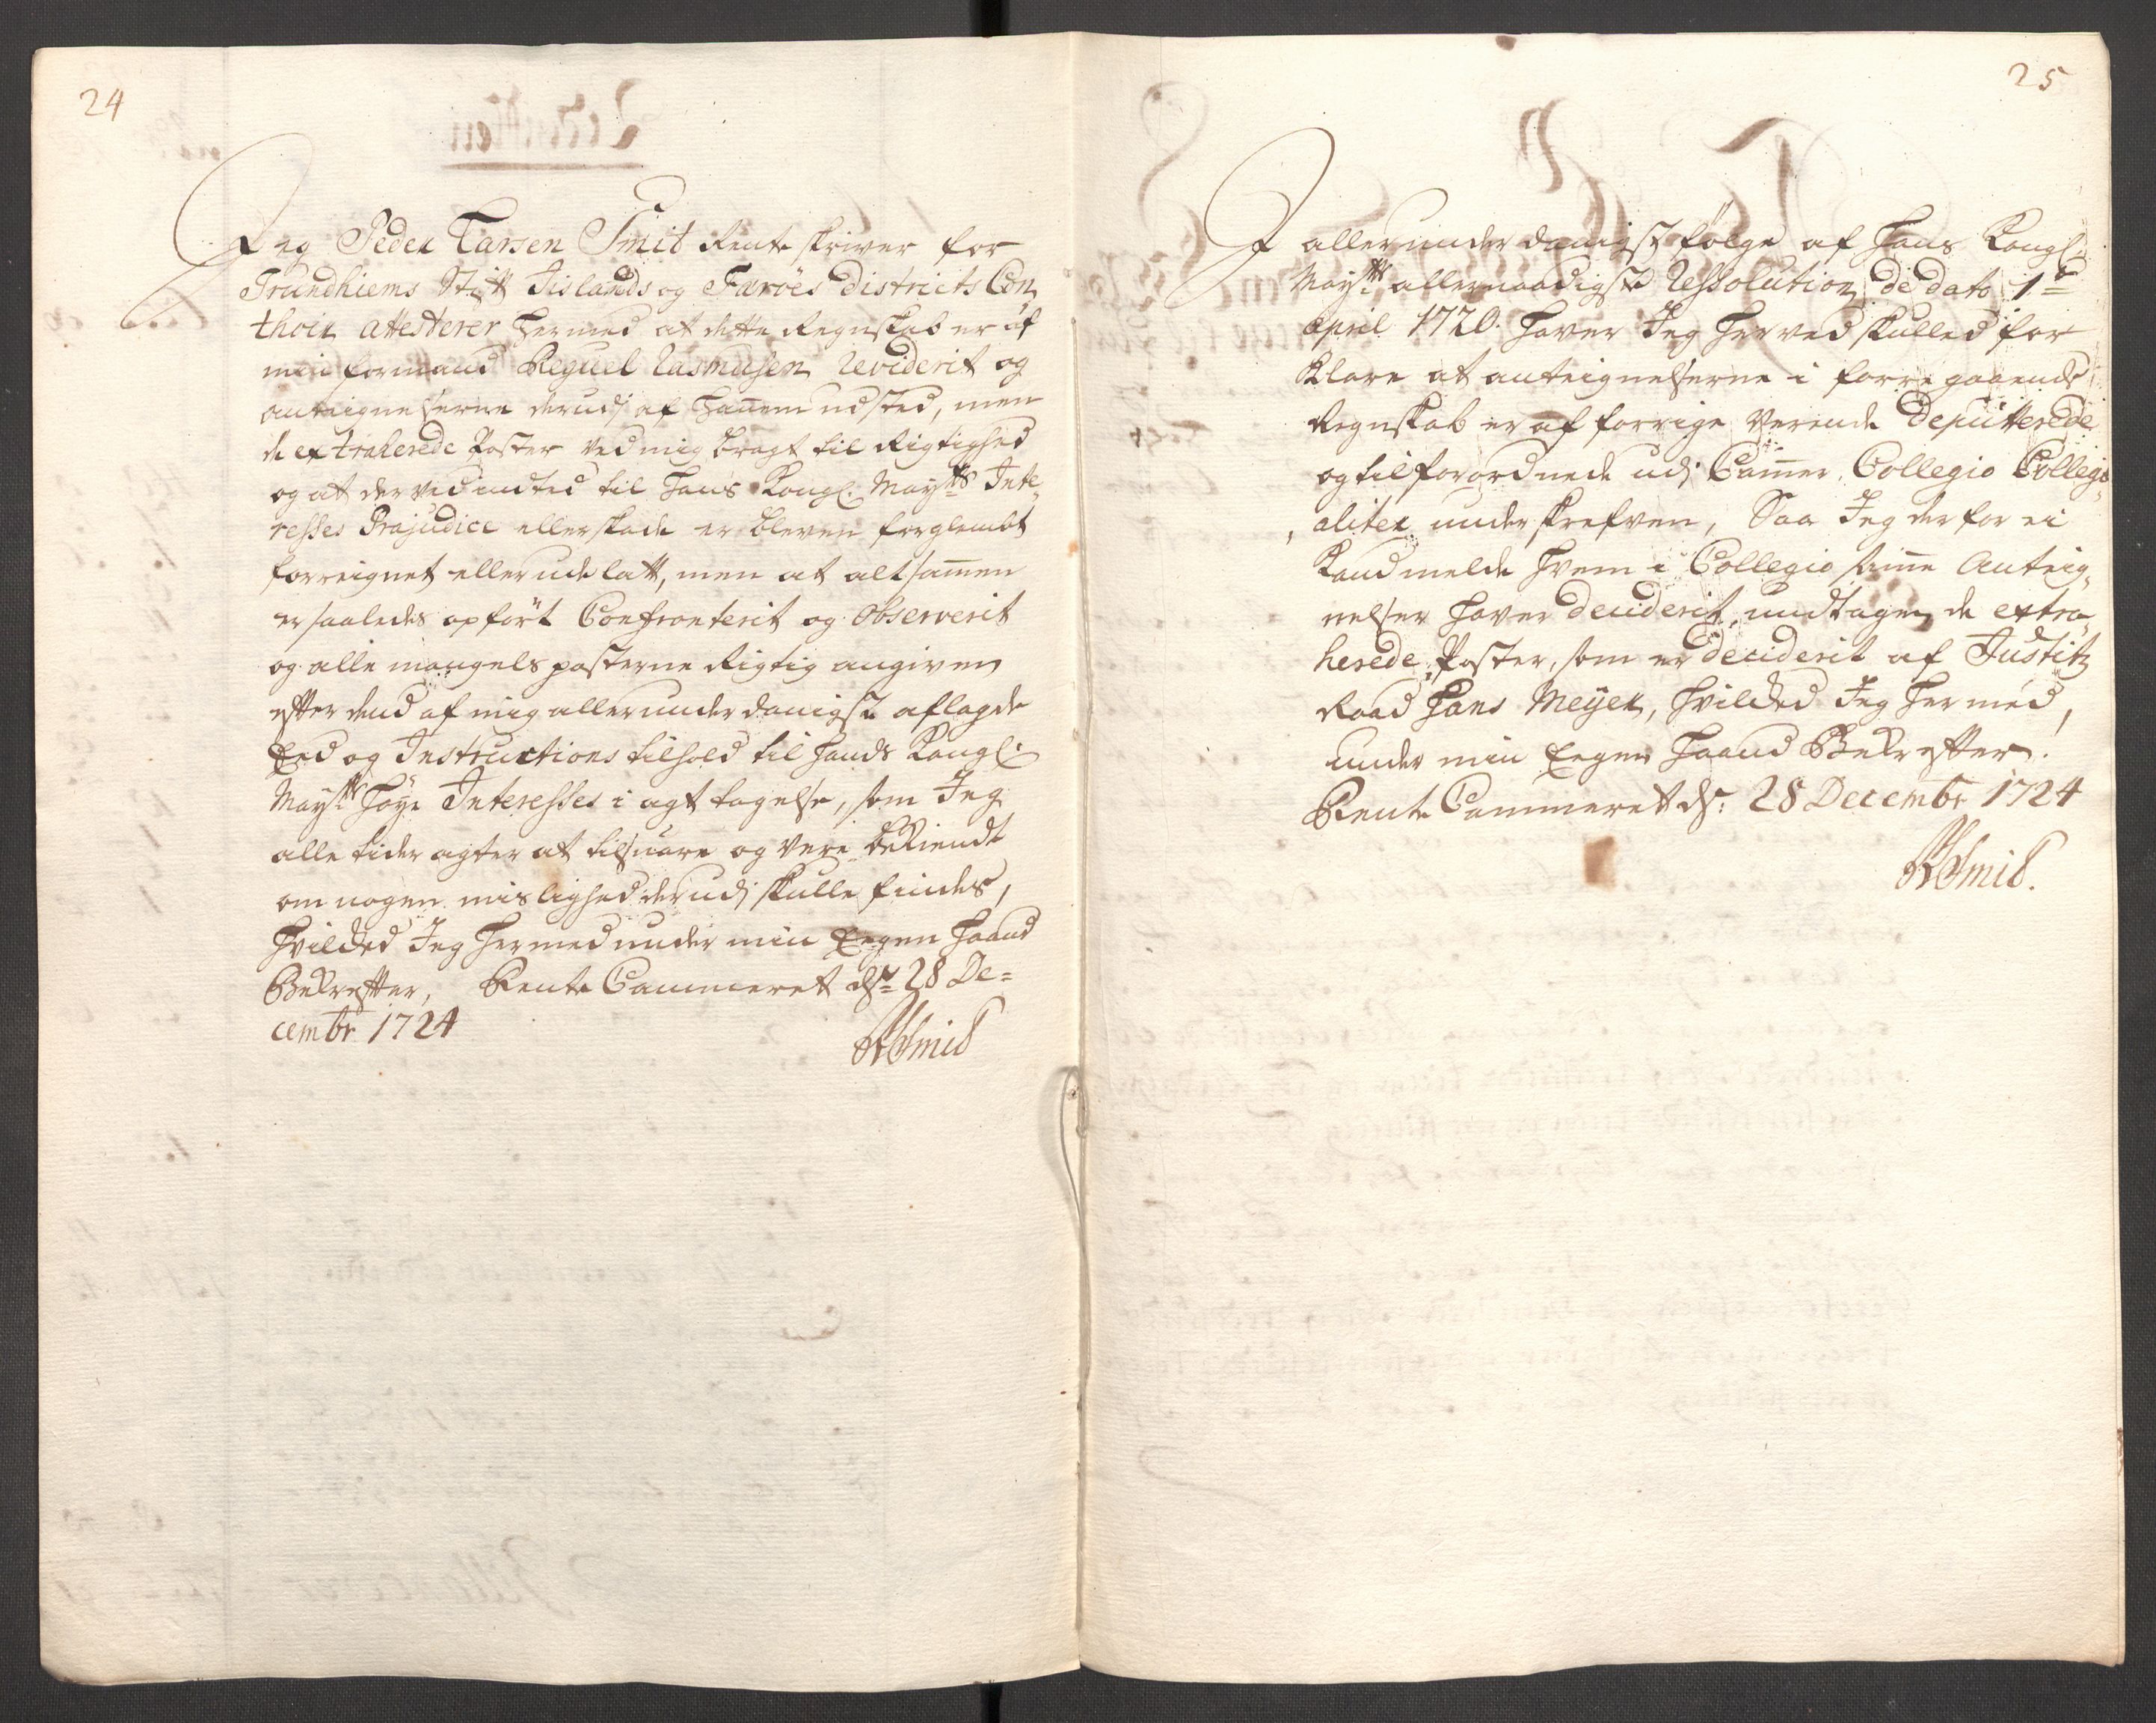 24
Jeg Peder Larsen Smit Rente skriver for
Trundhiems Stitt Jislands og Faröes Districts Con
thoir attesterer hermed at dette Regnskab er af
min formand Reguel Rasmusen Reviderit og
antegnelserne derudj af hannem udsted, men
de extraherede Poster ved mig bragt til Rigtighed
og at der ved indted til Hans Kongl. Mayts Inte„
resses Præjudice eller skade er bleven forglembt
forreignet eller udelatt, men at alt sammen
er saaledes opfört Confronterit og Observerit
og alle mangels posterne Rigtig angiven
efter dend af mig allerunderdanigst aflagde
Eed og Instructions tilhold til Hands Kongl.
Mayts höye Interesses i agt tagelse, som Jeg
alle tider agter at tilsuare og være bekiendt
om nogen mislighed derudj skulle findes,
hvilcked Jeg hermed under min Eegen haand
Bekrefter, Rente Cammeret ds 28 De=
cembr 1724
PLSmid
25
J allerunderdanigst fölge af Hans Kongl.
Mayts allernaadigste Ressolution de dato 1te
april 1720. haver Jeg herved skulled for
klare at anteignelserne i forregaaende
Regnskab er af forrige værende Deputterede
og tilforordnede udj Cammer Collegio Collegi„
„aliter underskrefven, Saa Jeg derfor ei
kand melde hvem i Collegio samme Anteig„
nelser haver deciderit, undtagen de extra„
herede Poster, som er deciderit af Justitz
Raad Hans Meyer, hvilcked Jeg hermed,
under min Eegen haand Bekrefter.
Rente Cammeret ds: 28 Decembr 1724
PLSmid.